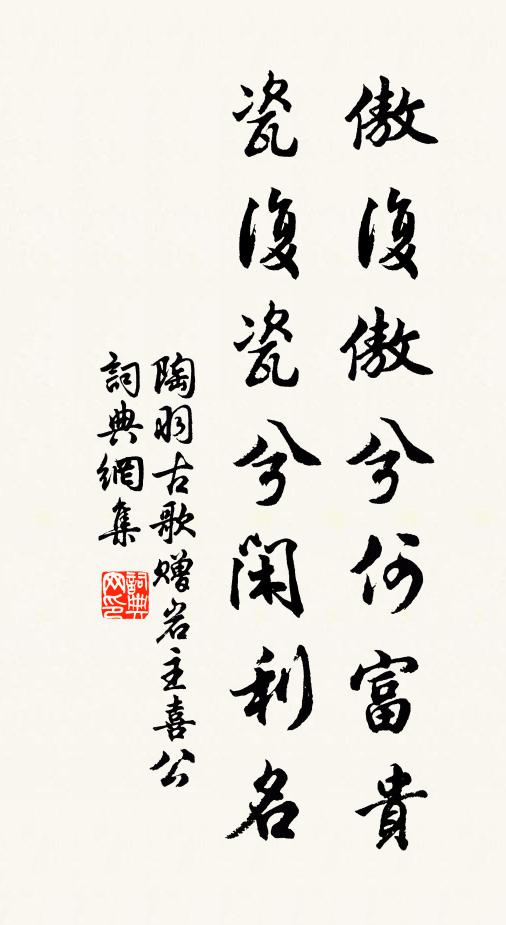 傲復傲兮何富貴
瓷復瓷兮閑利名
陶羽古歌贈岩主喜公
詞典網集
詞典网印